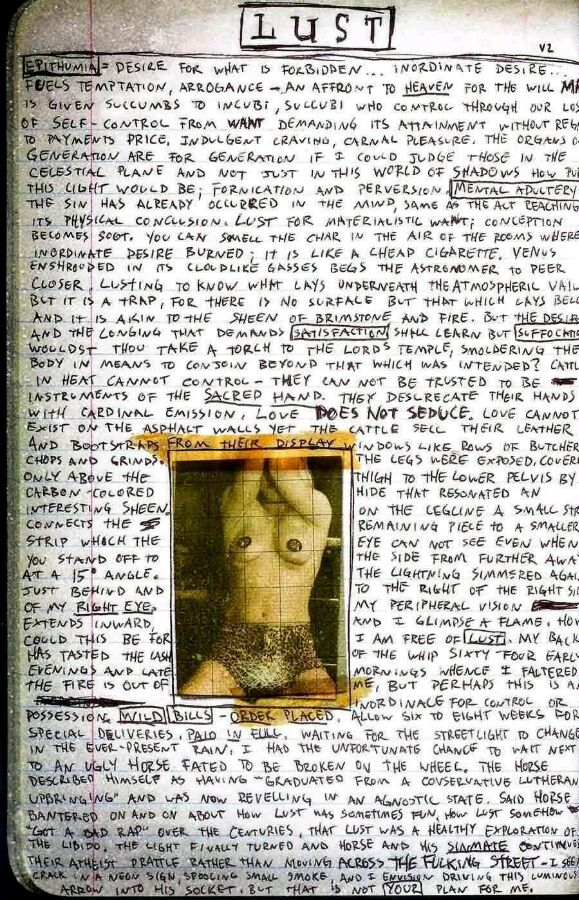 LUST
V2
EPITHUMIA = DESIRE FOR WHAT IS FORBIDDEN... INORDINATE DESIRE...
FUELS TEMPTATION, ARROGANCE - AN AFFRONT TO HEAVEN FOR THE WILL
IS GIVEN SUCCUMBS TO INCUBI, SUCCUBI WHO CONTROL THROUGH OUR LOSS
OF SELF-CONTROL FROM WANT DEMANDING ITS ATTAINMENT WITHOUT
TO PAYMENTS PRICE. INDULGENT CRAVING, CARNAL PLEASURE. THE ORGANS O
GENERATION ARE FOR GENERATION IF I COULD JUDGE THOSE IN THE
CELESTIAL PLANE AND NOT JUST IN THIS WORLD OF SHADOWS HOW
THIS LIGHT WOULD BE; FORNICATION AND PERVERSION. MENTAL ADULTERY
THE SIN HAS ALREADY OCCURRED IN THE MIND, SAME AS THE ACT REACHING
ITS PHYSICAL CONCLUSION. LUST FOR MATERIALISTIC WANT; CONCEPTION
BECOMES SOOT. YOU CAN SMELL THE CHAR IN THE AIR OF THE ROOMS WHERE
INORDINATE DESIRE BURNED; IT IS LIKE A CHEAP CIGARETTE. VENUS
ENSHROUDED IN ITS CLOUDLIKE GASSES BEGS THE ASTRONOMER TO PEER
CLOSER. LUSTING TO KNOW WHAT LAYS UNDERNEATH THE ATMOSPHERIC VAIL
BUT IT IS A TRAP, FOR THERE IS NO SURFACE BUT THAT WHICH LAYS BEL
AND IT IS AKIN TO THE SHEEN OF BRIMSTONE AND FIRE. BUT THE DESIR
AND THE LONGING THAT DEMANDS SATISFACTION SHALL LEARN BUT SUFFOCATI
WOULDST THOU TAKE A TORCH TO THE LORDS TEMPLE, SMOLDERING THE
BODY IN MEANS TO CONJOIN BEYOND THAT WHICH WAS INTENDED? CATTL
IN HEAT CANNOT CONTROL - THEY CAN NOT BE TRUSTED TO BE
INSTRUMENTS OF THE SACRED HAND. THEY DESECRATE THEIR HANDS
WITH CARDINAL EMISSION. LOVE DOES NOT SEDUCE. LOVE CANNOT
EXIST ON THE ASPHALT WALLS YET THE CATTLE SELL THEIR LEATHER
AND BOOTSTRAPS FROM THEIR DISPLAY WINDOWS LIKE ROWS OF BUTCHER
CHOPS AND GRINDS. THE LEGS WERE EXPOSED, COVERI
ONLY ABOVE THE THIGH TO THE LOWER PELVIS BY
CARBON COLORED HIDE THAT RESONATED AN
INTERESTING SHEEN. ON THE LEGLINE A SMALL STR
CONNECTS THE REMAINING PIECE TO A SMALLER
STRIP WHICH THE EYE CAN NOT SEE EVEN WHEN
YOU STAND OFF TO THE SIDE FROM FURTHER AWAY
AT A 15° ANGLE. THE LIGHTNING SIMMERED AGAI
JUST BEHIND AND TO THE RIGHT OF THE RIGHT SI
OF MY RIGHT EYE. MY PERIPHERAL VISION
EXTENDS INWARD, AND I GLIMPSE A FLAME. HOW
COULD THIS BE FOR I AM FREE OF LUST. MY BACK
HAS TASTED THE LASH OF THE WHIP SIXTY FOUR EARLY
EVENINGS AND LATE MORNINGS WHENCE I FALTERED
THE FIRE IS OUT OF ME, BUT PERHAPS THIS IS A
INORDINACE FOR CONTROL OR
POSSESSION. WILD BILLS - ORDER PLACED. ALLOW SIX TO EIGHT WEEKS FOR
SPECIAL DELIVERIES. PAID IN FULL. WAITING FOR THE STREETLIGHT TO CHANGE
IN THE EVER-PRESENT RAIN, I HAD THE UNFORTUNATE CHANCE TO WAIT NEXT
TO AN UGLY HORSE FATED TO BE BROKEN ON THE WHEEL. THE HORSE
DESCRIBED HIMSELF AS HAVING "GRADUATED FROM A CONSERVATIVE LUTHERAN
UPBRINGING" AND WAS NOW REVELLING IN AN AGNOSTIC STATE. SAID HORSE
BANTERED ON AND ON ABOUT HOW LUST WAS SOMETIMES FUN, HOW LUST SOMEHOW
"GOT A BAD RAP" OVER THE CENTURIES, THAT LUST WAS A HEALTHY EXPLORATION OF
THE LIBIDO. THE LIGHT FINALLY TURNED AND HORSE AND HIS SINMATE CONTINUE
THEIR ATHEIST PRATTLE RATHER THAN MOVING ACROSS THE FUCKING STREET - I SEE
CRACK IN A NEON SIGN, SPOOLING SMALL SMOKE, AND I ENVISION DRIVING THIS LUMINOUS
ARROW INTO HIS SOCKET. BUT THAT IS NOT YOUR PLAN FOR ME.